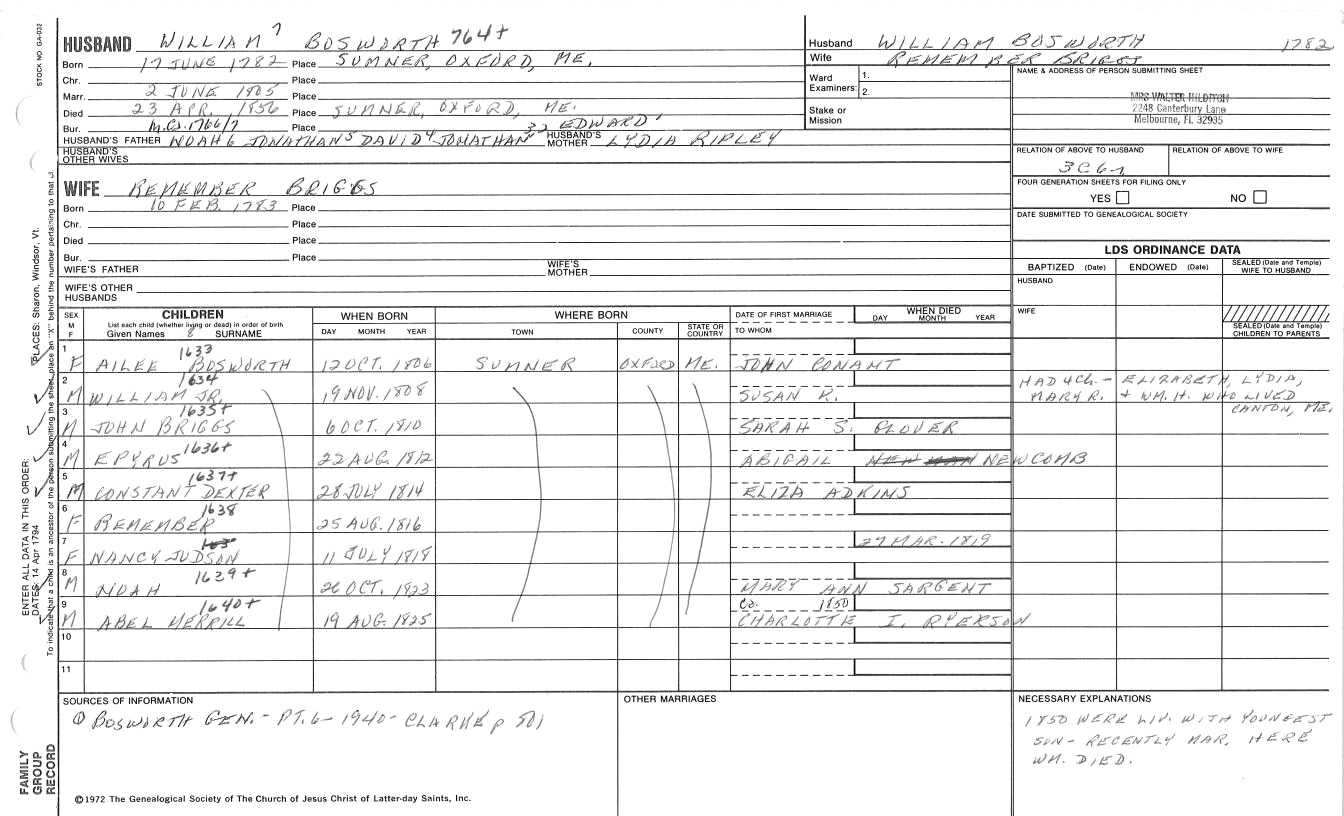 STOCK NO GA-032
HUSBAND WILLIAM 7 BOSWORTH 764+
Born 17 JUNE 1782 Place SUMNER, OXFORD, ME.
Chr. Place
Marr. 2 JUNE 1805 Place
Died 23 APR. 1856 Place SUMNER, OXFORD, ME.
Bur. M.G.S. 1766/7 Place
HUSBAND'S FATHER NOAH 6 JONATHAN 5 DAVID 4 JONATHAN 32 EDWARD 1 HUSBAND'S MOTHER LYDIA RIPLEY
HUSBAND'S OTHER WIVES
Husband WILLIAM BOSWORTH 1782
Wife REMEMBER BRIGGS
Ward Examiners: 1.
2.
Stake or Mission
NAME & ADDRESS OF PERSON SUBMITTING SHEET
MRS WALTER HILDITCH
2248 Canterbury Lane
Melbourne, FL 32935
RELATION OF ABOVE TO HUSBAND RELATION OF ABOVE TO WIFE
3C6r
FOUR GENERATION SHEETS FOR FILING ONLY
YES NO
DATE SUBMITTED TO GENEALOGICAL SOCIETY
WIFE REMEMBER BRIGGS
Born 10 FEB. 1783 Place
Chr. Place
Died Place
Bur. Place
WIFE'S FATHER WIFE'S MOTHER
WIFE'S OTHER HUSBANDS
LDS ORDINANCE DATA
BAPTIZED (Date) ENDOWED (Date) SEALED (Date and Temple) WIFE TO HUSBAND
HUSBAND
WIFE
SEALED (Date and Temple) CHILDREN TO PARENTS
SEX M F CHILDREN List each child (whether living or dead) in order of birth Given Names 8 SURNAME
WHEN BORN DAY MONTH YEAR
WHERE BORN TOWN COUNTY STATE OR COUNTRY
DATE OF FIRST MARRIAGE TO WHOM
WHEN DIED DAY MONTH YEAR
1 F 1633 AILEE BOSWORTH 12 OCT. 1806 SUMNER OXFORD ME. JOHN CONANT
2 M 1634 WILLIAM JR. 19 NOV. 1808 SUSAN R. HAD 4 CH. - ELIZABETH, LYDIA, MARY R. + WM. H. WHO LIVED CANTON, ME.
3 M 1635+ JOHN BRIGGS 6 OCT. 1810 SARAH S. GLOVER
4 M EPYRUS 1636+ 22 AUG. 1812 ABIGAIL NEWCOMB
5 M 1637+ CONSTANT DEXTER 28 JULY 1814 ELIZA ADKINS
6 F 1638 REMEMBER 25 AUG. 1816
7 F 163 NANCY JUDSON 11 JULY 1818 27 MAR. 1819
8 M 1639+ NOAH 26 OCT. 1823 MARY ANN SARGENT
9 M 1640+ ABEL MERRILL 19 AUG. 1825 Ca. 1850 CHARLOTTE I. RYERSON
10
11
SOURCES OF INFORMATION
① BOSWORTH GEN. - PT. 6 - 1940 - CLARKE p 501
OTHER MARRIAGES
NECESSARY EXPLANATIONS
1850 WERE LIV. WITH YOUNGEST
SON - RECENTLY MAR. HERE
WM. DIED.
©1972 The Genealogical Society of The Church of Jesus Christ of Latter-day Saints, Inc.
ENTER ALL DATA IN THIS ORDER:
DATES: 14 Apr 1794 PLACES: Sharon, Windsor, Vt.
To indicate that a child is an ancestor of the person submitting the sheet, place an "X" behind the number pertaining to that
FAMILY
GROUP
RECORD